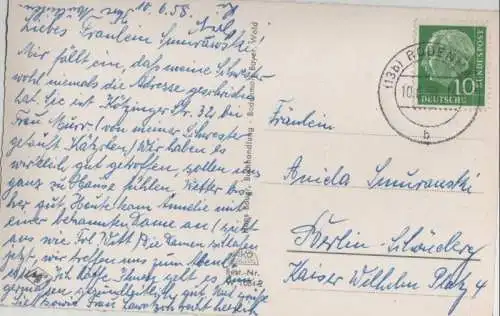 10.6.58
Liebes Fräulein Smurawski!
Mir fällt ein, daß meine Schwester
wohl niemals die Adresse geschrieben
hat. Sie ist Kötzinger Str. 32, bei
Frau Murr (von meiner Schwester
getauft Kätzchen) Wir haben es
wirklich gut getroffen, sollen uns
ganz zu Hause fühlen. Wetter bis-
her gut. Heute kam Annelie mit
einer bekannten Dame an (sieht
aus wie Frl. Witt) Die Damen schlafen
jetzt, wir treffen uns zum Abend-
Ich hoffe Ihnen geht es
gesundheitlich gut.
sowie Frau
Buchhandlung - Bodenmais Bayer. Wald
Best.-Nr.
(13b) RODING
10.
b
DEUTSCHE
BUNDESPOST
10
Fräulein
Anida Smurawski
Berlin-Schöneberg
Kaiser Wilhelm Platz 4